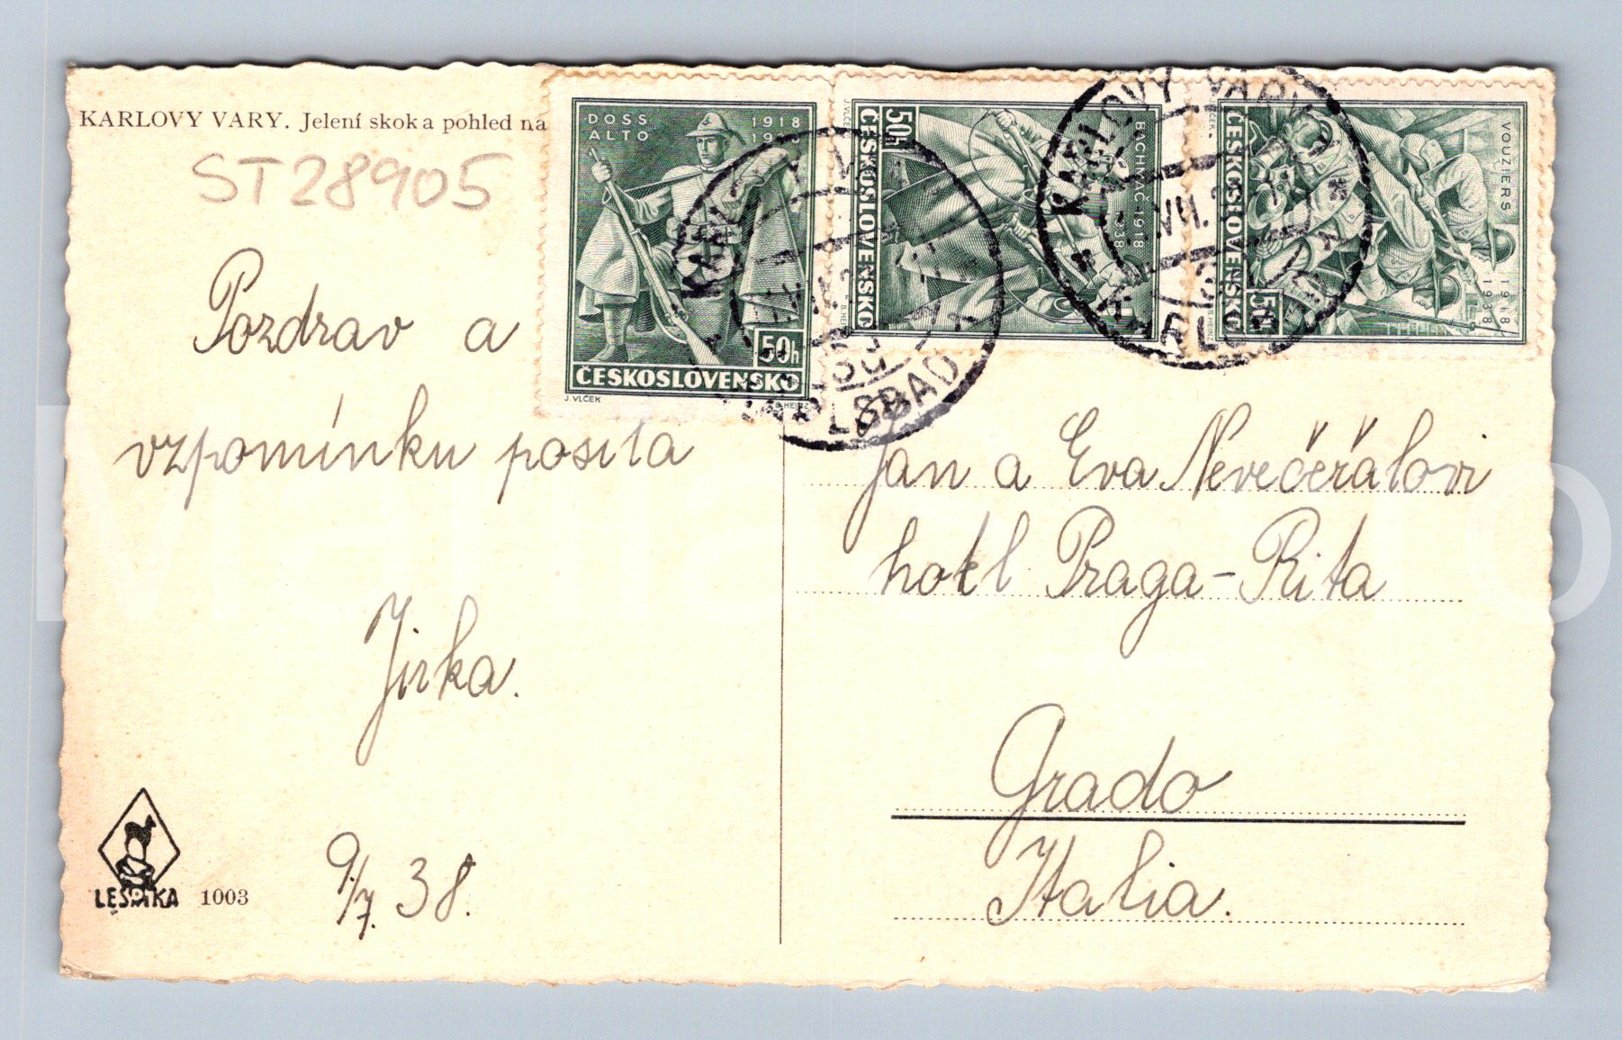 KARLOVY VARY. Jelení skok a pohled na
ST28905
DOSS ALTO
1918
ČESKOSLOVENSKO
50h
J. VLČEK
B. HEINZ
BACHMAČ 1918 1938
ČESKOSLOVENSKO
50h
VOUZIERS 1918 1938
ČESKOSLOVENSKO
50h
KARLOVY VARY
VII.
KARLSBAD
Pozdrav a
vzpomínku posílá
Jirka.
9/7. 38.
LESNKA 1003
Jan a Eva Nevečeřalovi
hotel Praga-Rita
Grado
Italia.